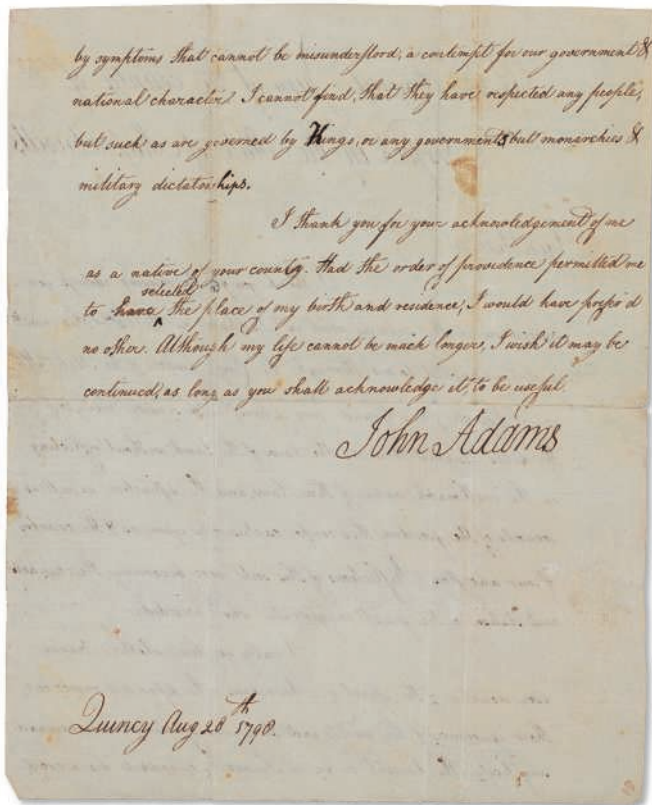 by symptoms that cannot be misunderstood, a contempt for our government &
national character. I cannot find, that they have respected any people,
but such as are governed by Kings, or any governments but monarchies &
military dictatorships.
I thank you for your acknowledgement of me
as a native of your county. Had the order of providence permitted me
selected
to have the place of my birth and residence, I would have prefer'd
no other. Although my life cannot be much longer, I wish it may be
continued, as long as you shall acknowledge it, to be useful.
John Adams
Quincy Aug 28th 1798.